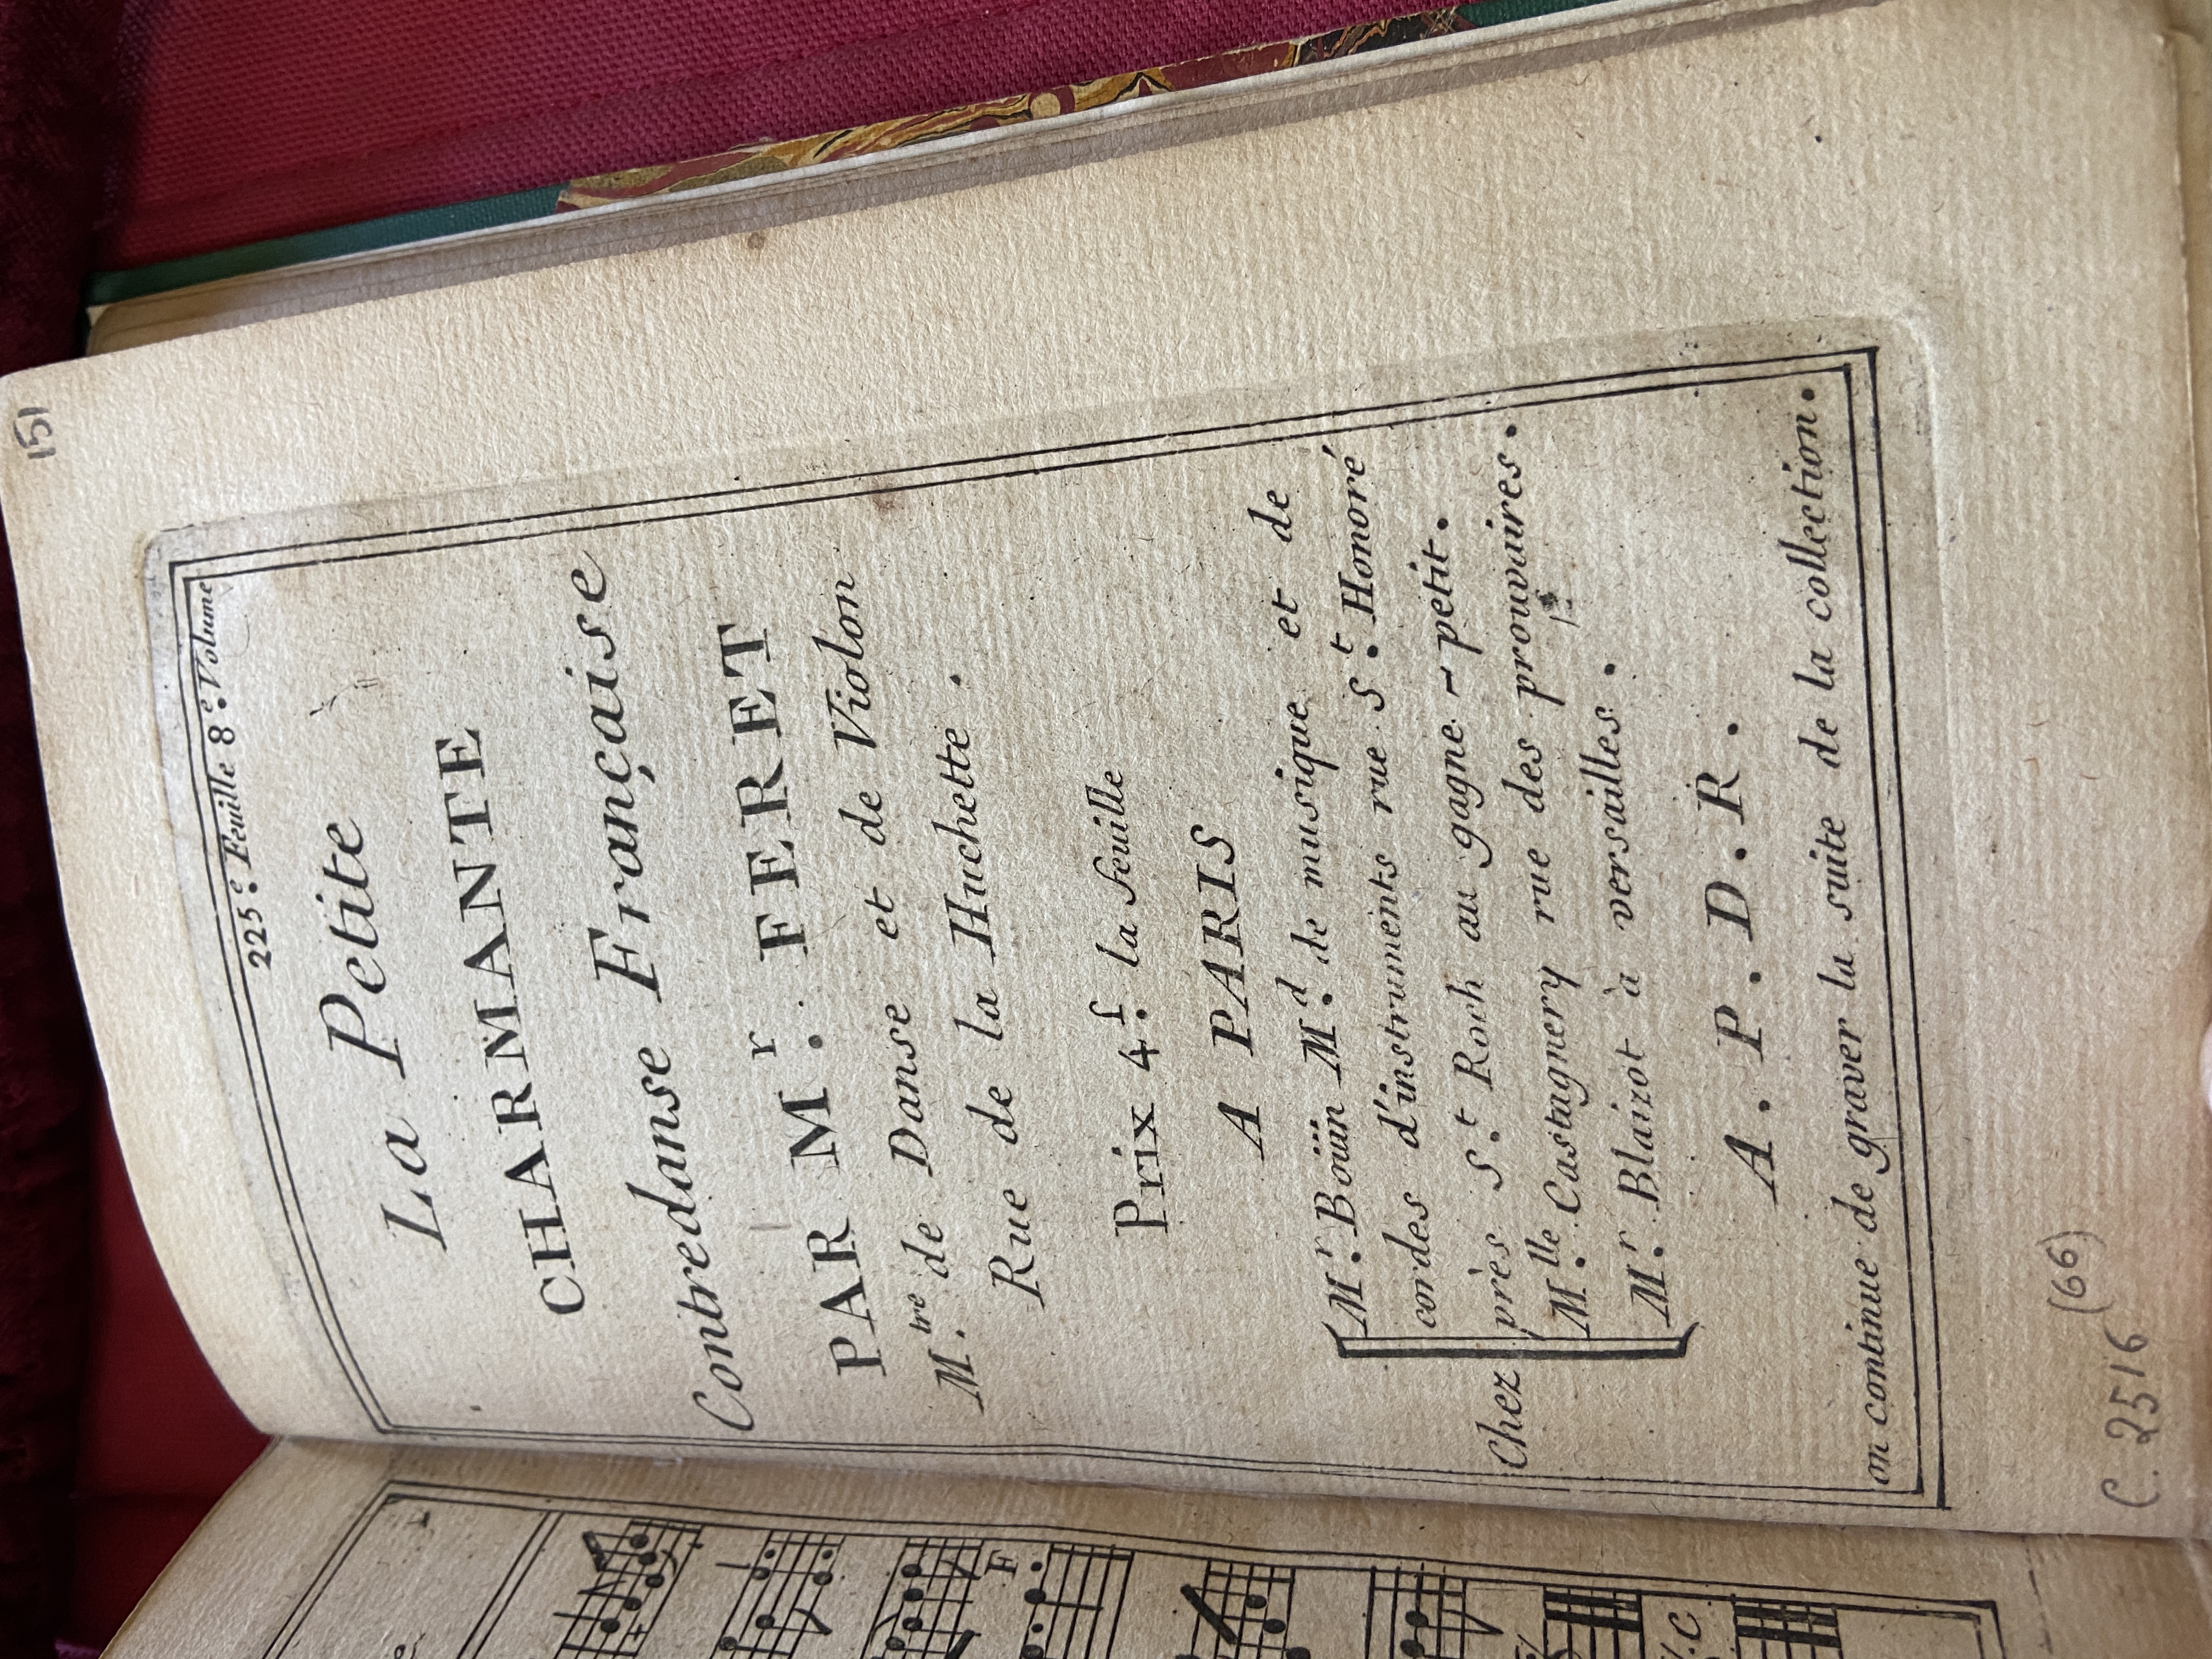 151
225.e Feuille 8.e Volume
La Petite
CHARMANTE
Contredanse Française
PAR M.r FERET
M.tre de Danse et de Violon
Rue de la Huchette.
Prix 4.f la feuille
A PARIS
Chez
M.r Boüin M.d de musique et de
cordes d'instruments rue S.t Honoré
près S.t Roch au gagne-petit.
M.lle Castagnery rue des prouvaires.
M.r Blaizot à versailles.
A.P.D.R.
on continue de graver la suite de la collection.
C. 2516 (66)
F